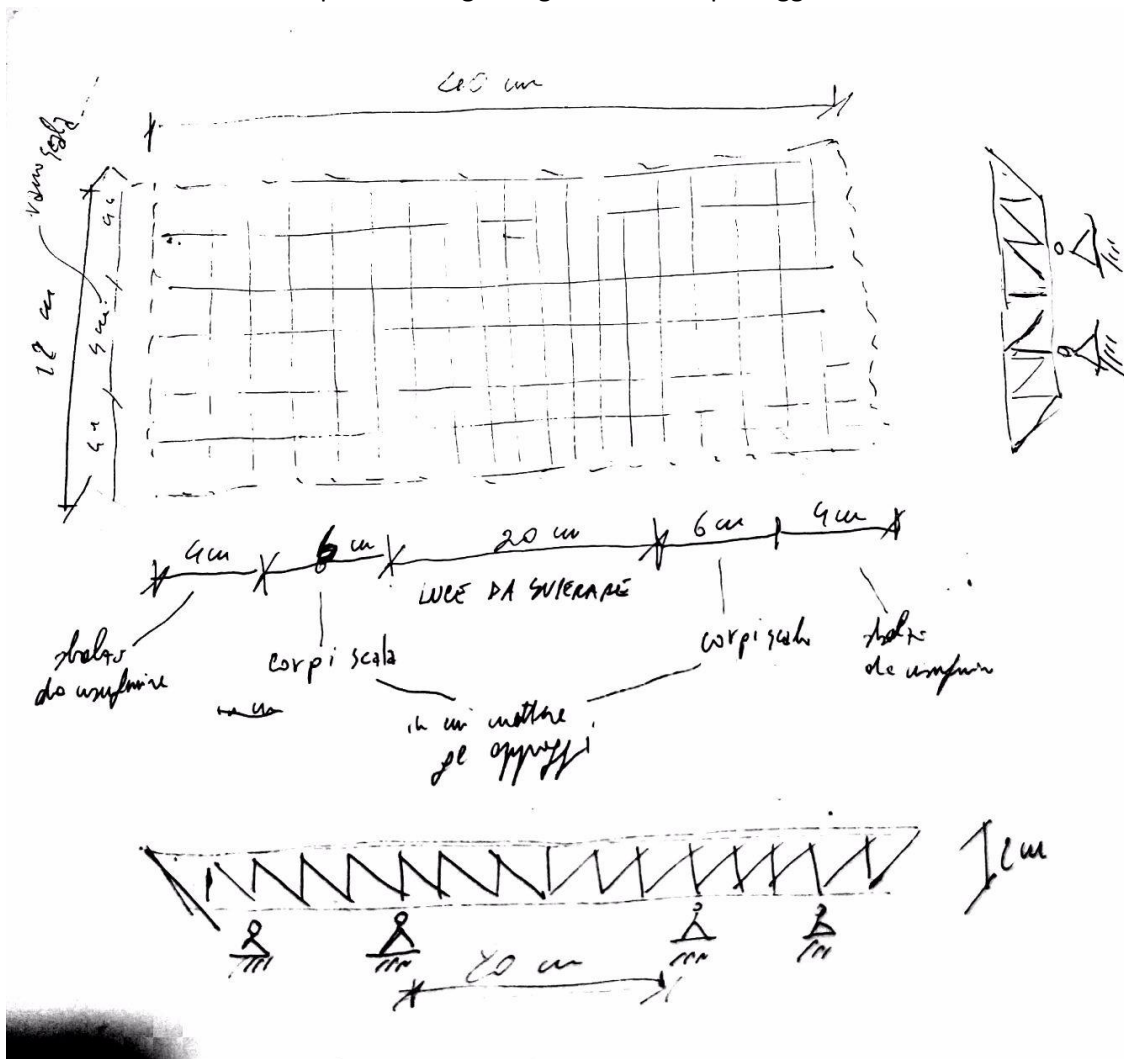 40 cm
vano scala
12 cm
4 cm
4 cm 6 cm 20 cm 6 cm 4 cm
LUCE DA SUPERARE
sbalzo
da usufruire
corpi scala
corpi scala
sbalzo
da usufruire
in cui mettere
gli appoggi
2 cm
20 cm